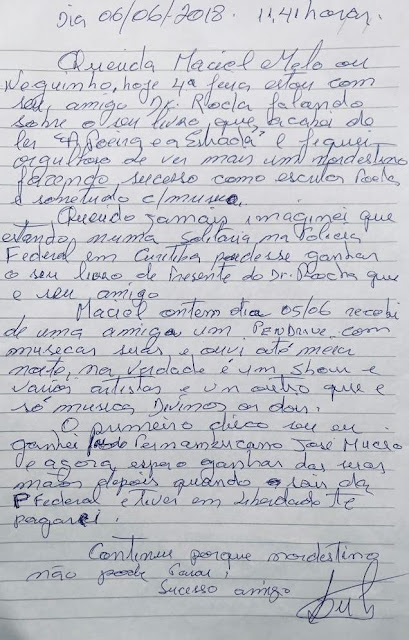 Dia 06/06/2018. 11,41 horas.
Querida Maciel Melo ou
Neguinho, hoje 4ª feira estou com
seu amigo Dr. Rocha falando
sobre o seu livro que acabei do
ler "A Poeira e a Estrada" e fiquei
orgulhoso de ver mais um nordestino
fazendo sucesso como escritor Poeta
e sometudo c/musica.
Querido jamais imaginei que
estando numa solitaria na Policia
Federal em Curitiba pudesse ganhar
o seu livro de Presente do Dr. Rocha que
e seu amigo
Maciel ontem dia 05/06 recebi
de uma amiga um PENDRIVE com
musecas suas e ouvi até meia
noite, na verdade é um show e
varios artistas e un outro que e
só musica Divinos os dois.
O primeiro disco seu eu
ganhei do Pernambucano José Mucio
e agora espero ganhar das suas
mãos depois quando sair da
P Federal e tiver em liberdade te
pagarei.
Continue porque nordestino
não pode Parar,
Sucesso amigo